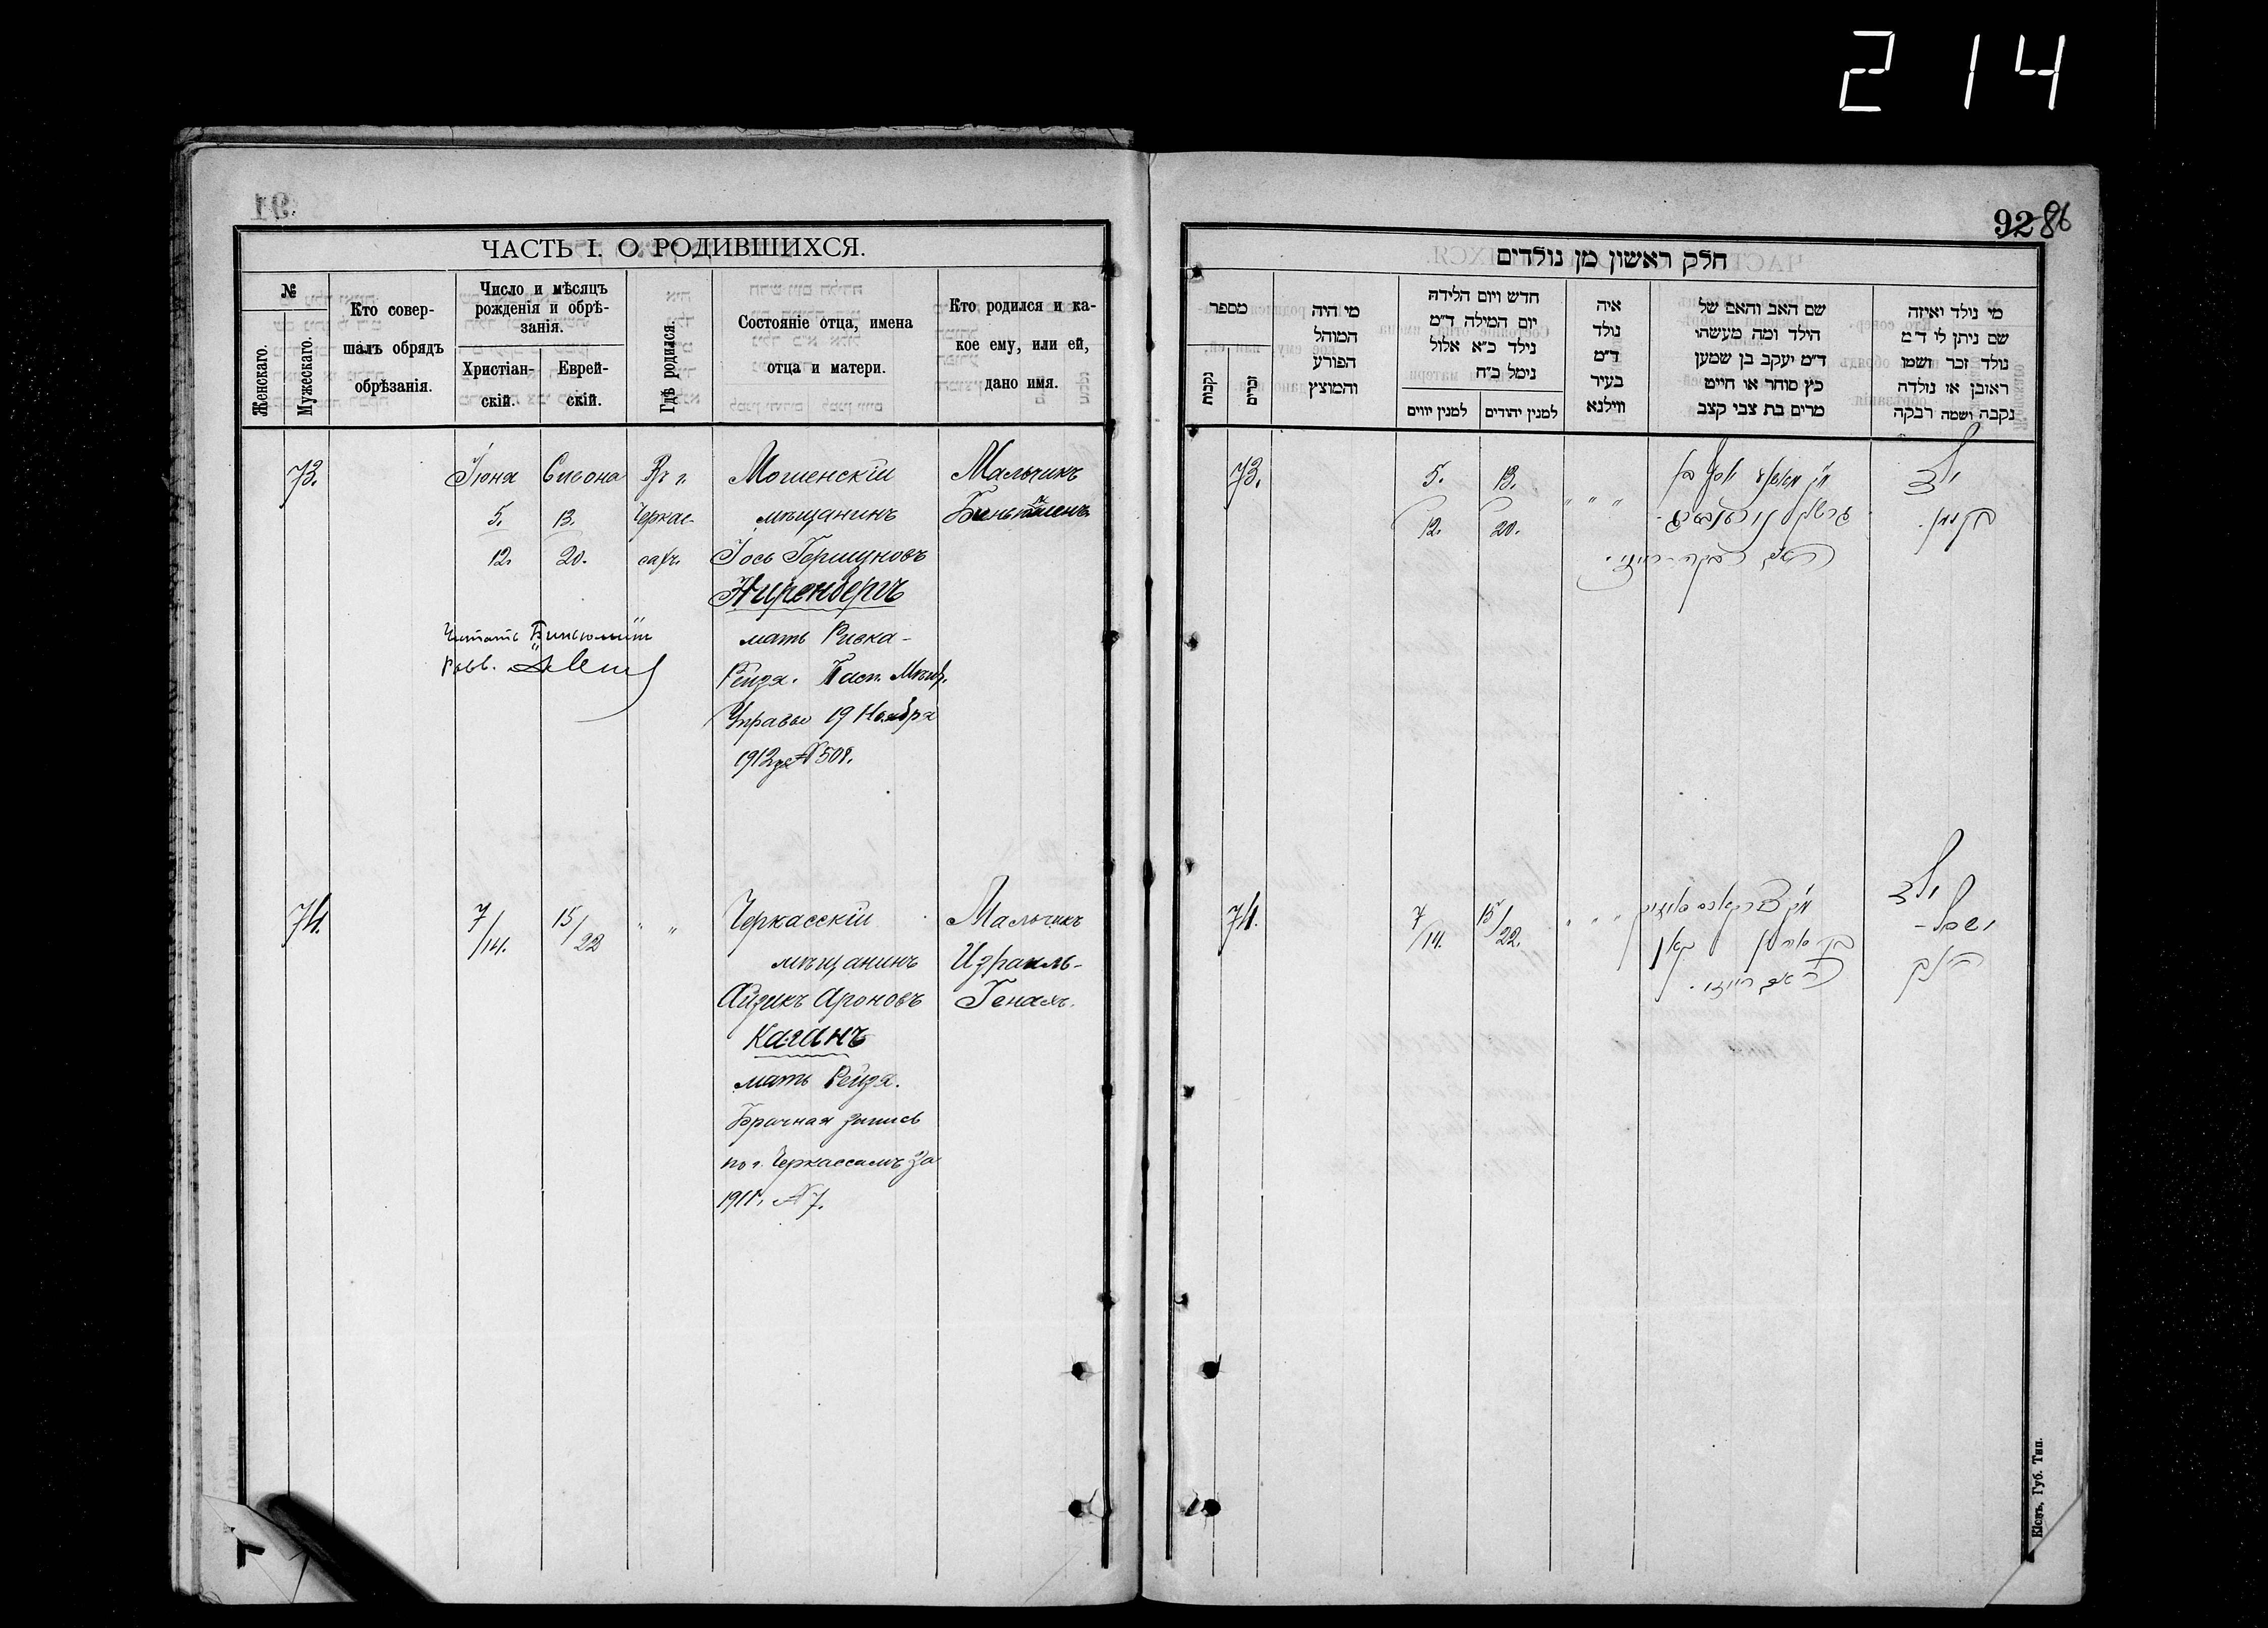 214
ЧАСТЬ I. О РОДИВШИХСЯ.
№
Женскаго.
Мужескаго.
Кто совер-
шалъ обрядъ
обрѣзанія.
Число и мѣсяцъ
рожденія и обрѣ-
занія.
Христіан-
скій.
Еврей-
скій.
Гдѣ родился.
Состояніе отца, имена
отца и матери.
Кто родился и ка-
кое ему, или ей,
дано имя.
73.
Іюня
5.
12.
Сивона
13.
20.
Въ г.
Черкас-
сахъ.
Мошенскій
мѣщанинъ
Іось Гершуновъ
Ниренбергъ
мать Ривка-
Рейзя. Пасп. Мѣщ.
Управы 19 Ноября
1912 г. № 508.
Мальчикъ
Читать
74.
7/14.
15/22
" "
Черкасскій
мѣщанинъ
Айзикъ Ароновъ
Каганъ
мать Рейзя.
Брачная запись
по г. Черкассамъ за
1911 г. № 7.
Мальчикъ
Израиль-
Генахъ.
92 86
חלק ראשון מן נולדים
מספר
נקבות
זכרים
מי היה
המוהל
הפורע
והמוצץ
חדש ויום הלידה
יום המילה ד״מ
נילד כ״א אלול
נימל כ״ח
למנין יווים
למנין יהודים
איה
נולד
ד״מ
בעיר
ווילנא
שם האב והאם של
הילד ומה מעשהו
ד״מ יעקב בן שמען
כץ סוחר או חייט
מרים בת צבי קצב
מי נולד ואיזה
שם ניתן לו ד״מ
נולד זכר ושמו
ראובן או נולדה
נקבה ושמה רבקה
73.
5.
12.
13.
20.
" " "
ילד
בנימן.
74.
7/14.
15/22.
" " "
בן אהרן כאגאן
ילד
ישראל-
הענך
Кіевъ, Губ. Тип.